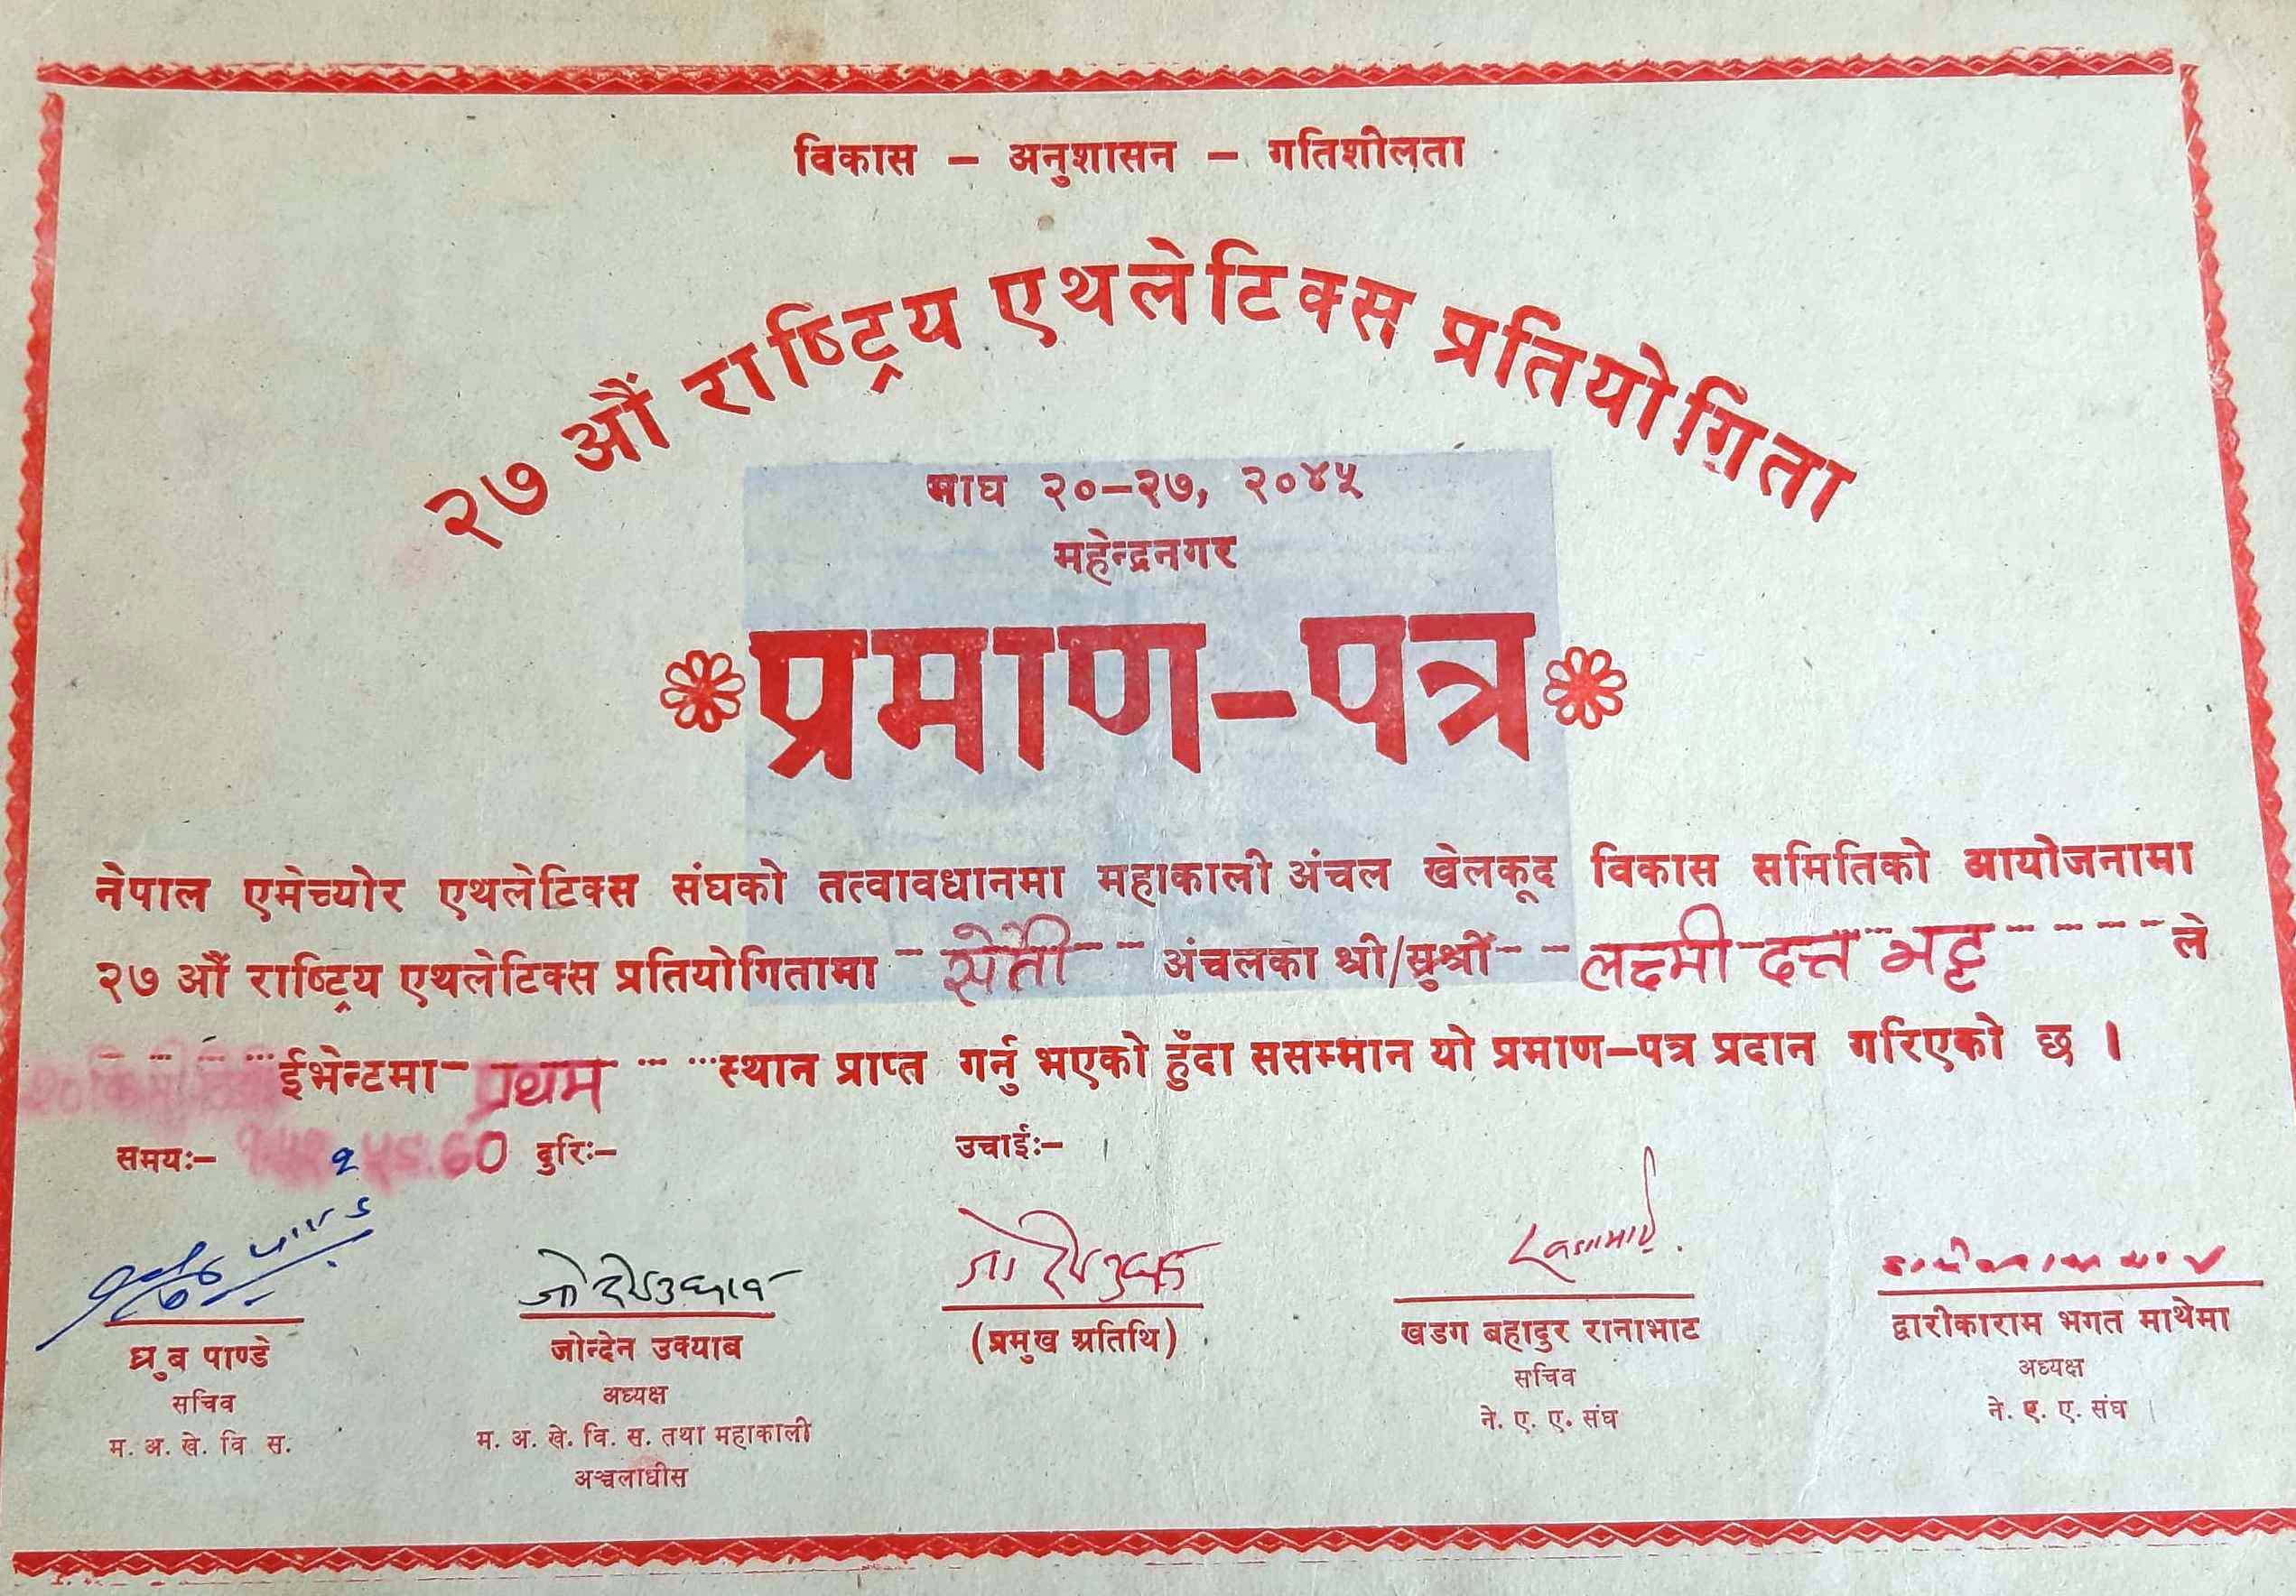 विकास – अनुशासन – गतिशीलता
२७ औं राष्ट्रिय एथलेटिक्स प्रतियोगिता
माघ २०–२७, २०४५
महेन्द्रनगर
प्रमाण–पत्र
नेपाल एमेच्योर एथलेटिक्स संघको तत्वावधानमा महाकाली अंचल खेलकूद विकास समितिको आयोजनामा
२७ औं राष्ट्रिय एथलेटिक्स प्रतियोगितामा सेती अंचलका श्री/सुश्री लक्ष्मी दत्त भट्ट ले
ईभेन्टमा प्रथम स्थान प्राप्त गर्नु भएको हुँदा ससम्मान यो प्रमाण–पत्र प्रदान गरिएको छ ।
समयः– दुरिः– उचाईः–
ध्रुब पाण्डे जोन्देन उक्याब (प्रमुख अतिथि) खडग बहादुर रानाभाट द्वारीकाराम भगत माथेमा
सचिव अध्यक्ष सचिव अध्यक्ष
म. अ. खे. वि. स. म. अ. खे. वि. स. तथा महाकाली ने. ए. ए. संघ ने. ए. ए. संघ
अञ्चलाधीस